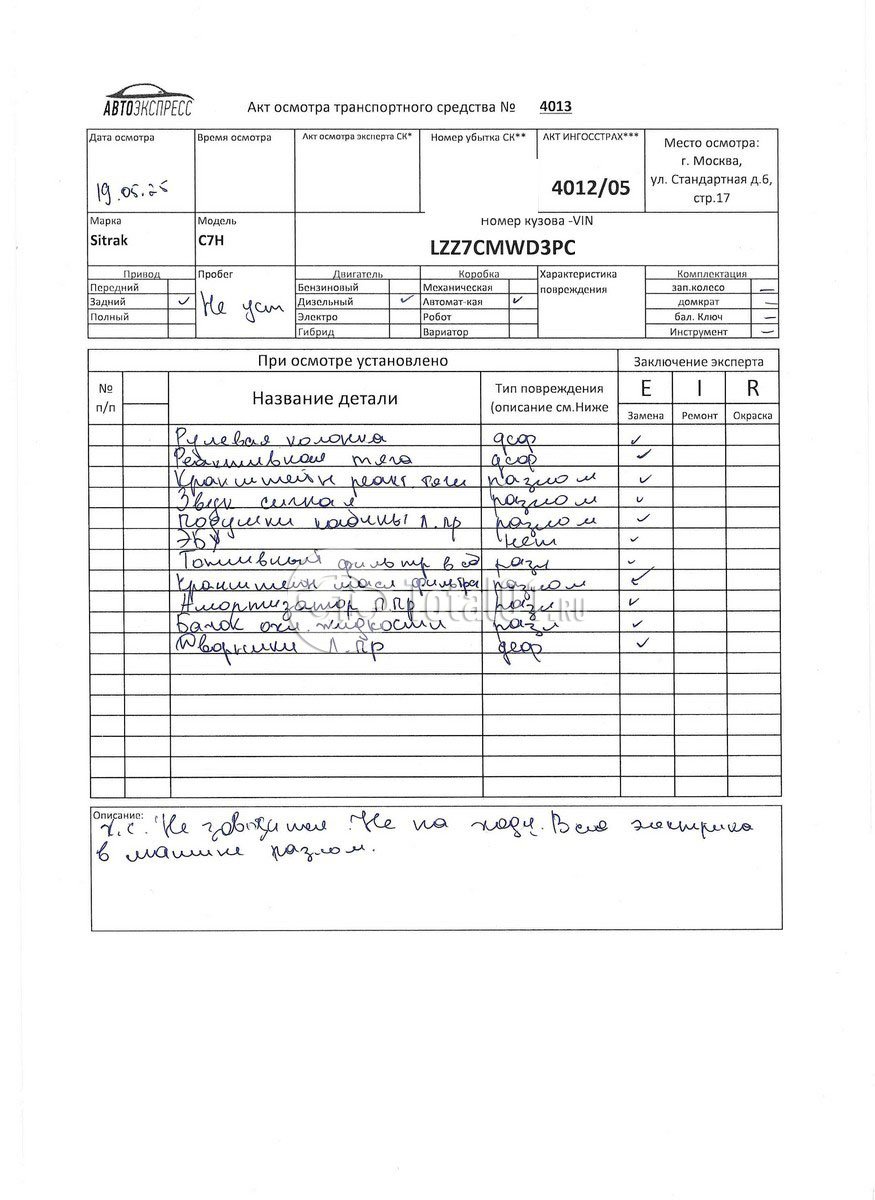 АВТОЭКСПРЕСС
Акт осмотра транспортного средства № 4013
Дата осмотра
Время осмотра
Акт осмотра эксперта СК*
Номер убытка СК**
АКТ ИНГОССТРАХ***
Место осмотра:
г. Москва,
ул. Стандартная д.6,
стр.17
19.05.25
4012/05
Марка
Модель
номер кузова -VIN
Sitrak
C7H
LZZ7CMWD3PC
Привод
Пробег
Двигатель
Коробка
Характеристика
повреждения
Комплектация
Передний
Бензиновый
Механическая
зап.колесо —
Задний ✓
Не уст
Дизельный ✓
Автомат-кая ✓
домкрат —
Полный
Электро
Робот
бал. Ключ —
Гибрид
Вариатор
Инструмент —
При осмотре установлено
Заключение эксперта
№
п/п
Название детали
Тип повреждения
(описание см.Ниже
E I R
Замена Ремонт Окраска
Рулевая колонка деф ✓
Реактивная тяга деф ✓
Кронштейн реакт. тяги разлом ✓
Звук сигнал разлом ✓
Подушки кабины л.пр разлом ✓
ЭБУ нет ✓
Топливный фильтр в сб разл ✓
Кронштейн масл фильтра разлом ✓
Амортизатор П пр разл ✓
Бачок охл. жидкости разл ✓
Дворники Л.пр деф ✓
TotalCar.RU
Описание:
т.с. Не заводится. Не на ходу. Вся электрика
в машине разлом.